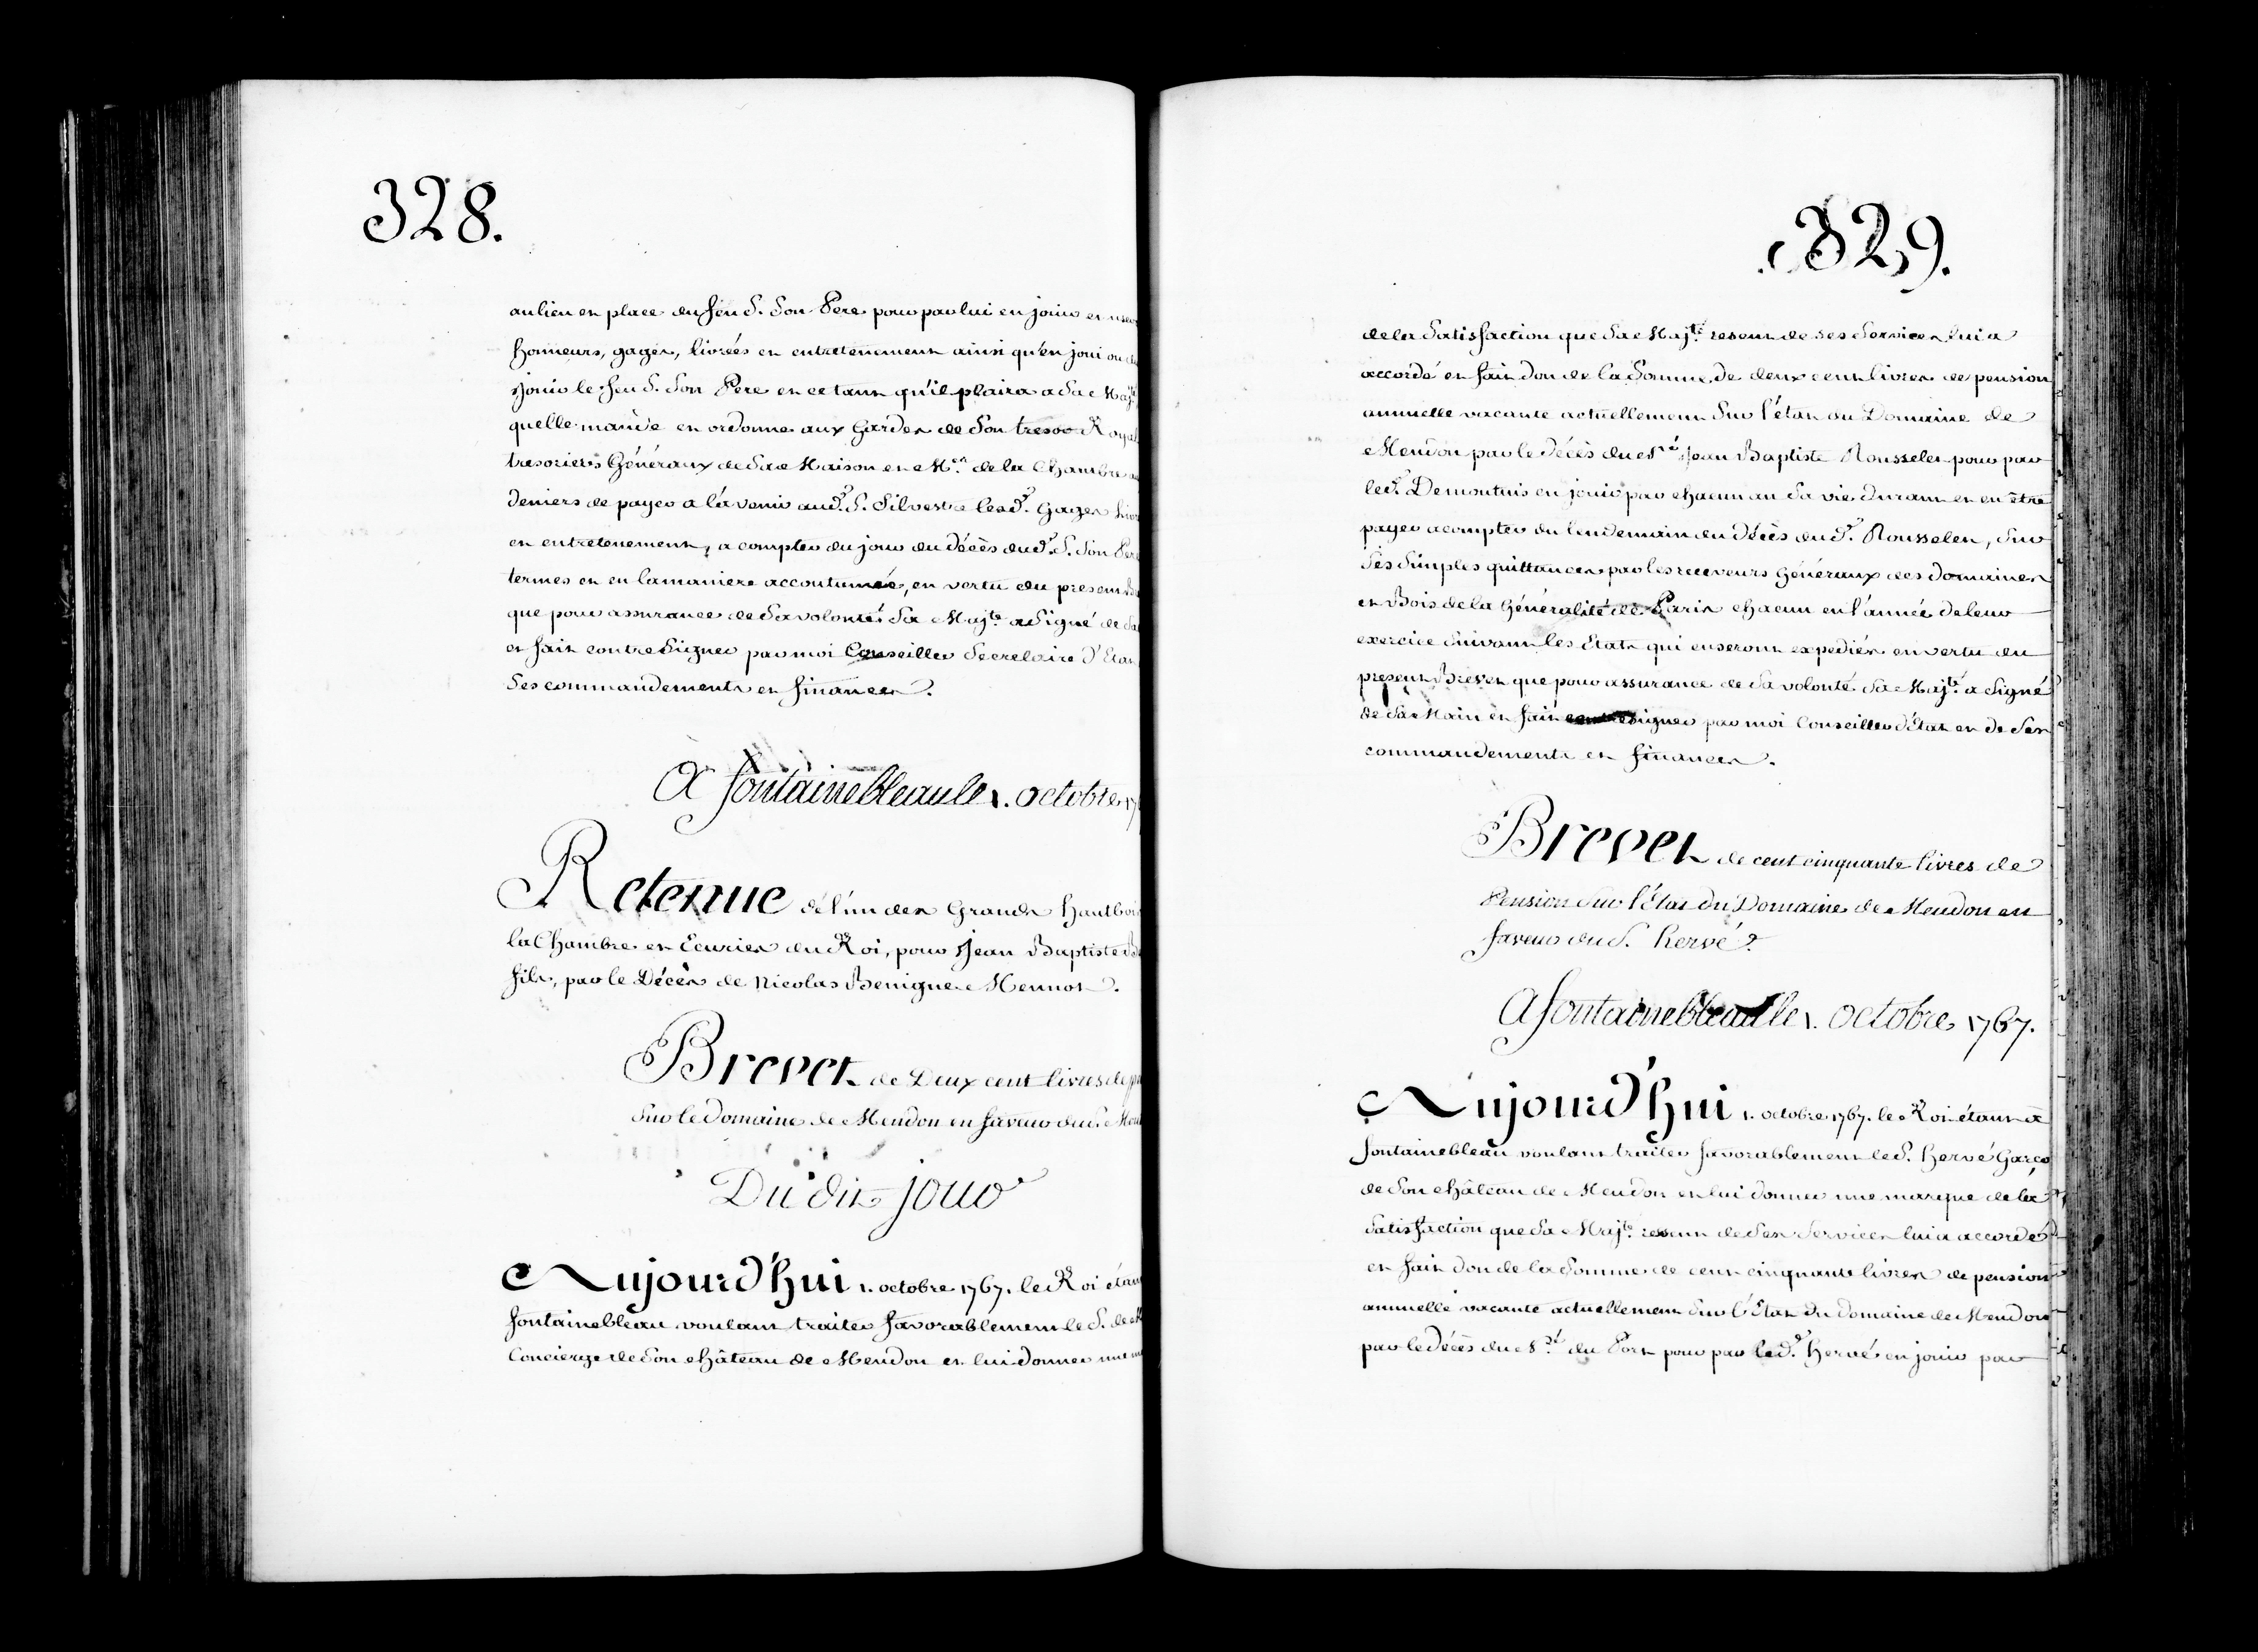 328.
au lieu et place du feu S. son Pere pour par lui en jouir et user
honneurs, gages, livrées et entretenement ainsi qu'en joui ou du
jouir le feu S. son Pere et ce tant qu'il plaira a Sa Maj.té
quelle mande et ordonne aux Gardes de son tresor Royal
tresoriers Généraux de Sa Maison et M.en de la Chambre au
deniers de payer a l'avenir aud.t S. Silvestre lesd.t Gages livr
et entretenement, a compter du jour du décès dud.t S. son Pere
termes et en la maniere accoutumée, en vertu du present Br
que pour assurance de sa volonté Sa Maj.té a signé de Sa
et fait contresigner par moi Conseiller Secretaire d'Etat
Ses commandements et finances.
A fontainebleau le 1. octobre 17
Retenue de l'un des Grands hautbois
la Chambre et Ecuries du Roi, pour Jean Baptiste
fils, par le Décès de Nicolas Benigne Mennot.
Brevet de Deux cent livres de p
sur le domaine de Meudon en faveur du S.
Du dit jour
Aujourd'hui 1. octobre 1767. le Roi étant
fontainebleau voulant traiter favorablement le S. de
Concierge de son château de Meudon et lui donner une m
329.
de la Satisfaction que Sa Maj.té resent de ses services, lui a
accordé et fait don de la somme de deux cent livres de pension
annuelle vacante actuellement sur l'état du Domaine de
Meudon par le décès du n.é Jean Baptiste Rousselet pour par
led.t Demontuis en jouir par chacun an sa vie durant et en être
payer a compter du lendemain du décès du d.t Rousselet, sur
ses simples quittances par les receveurs Généraux des domaines
et Bois de la Généralité de Paris chacun en l'année de leur
exercice suivant les Etats qui en seront expediés en vertu du
present Brevet que pour assurance de sa volonté Sa Maj.té a signé
de sa Main et fait contresigner par moi Conseiller d'Etat et de ses
commandements et finances.
Brevet de cent cinquante livres de
Pension sur l'Etat du Domaine de Meudon en
faveur du S. hervé.
A fontainebleau le 1. octobre 1767.
Aujourd'hui 1. octobre 1767. le Roi étant a
fontainebleau voulant traiter favorablement le S. hervé Garço
de son château de Meudon et lui donner une marque de la
Satisfaction que Sa Maj.té resent de ses services lui a accordé
et fait don de la somme de cent cinquante livres de pension
annuelle vacante actuellement sur l'Etat du domaine de Meudon
par le décès du du Port pour par led.t hervé en jouir par